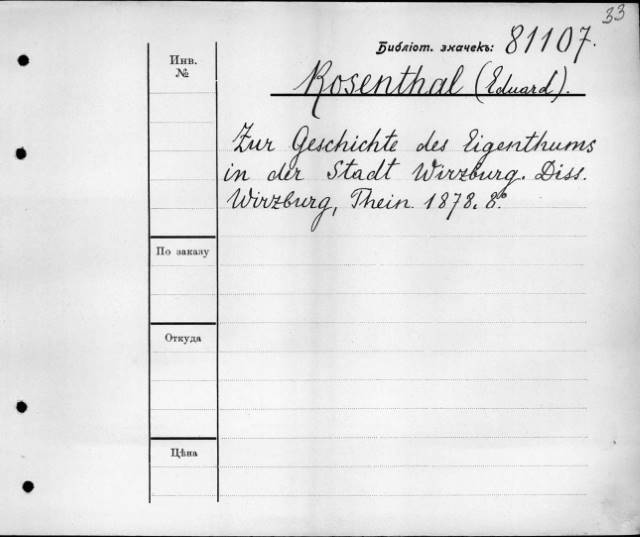 33
Библіот. значекъ: 81107.
Инв.
№
Rosenthal (Eduard).
Zur Geschichte des Eigenthums
in der Stadt Wirzburg. Diss.
Wirzburg, Thein. 1878. 8°.
По заказу
Откуда
Цѣна